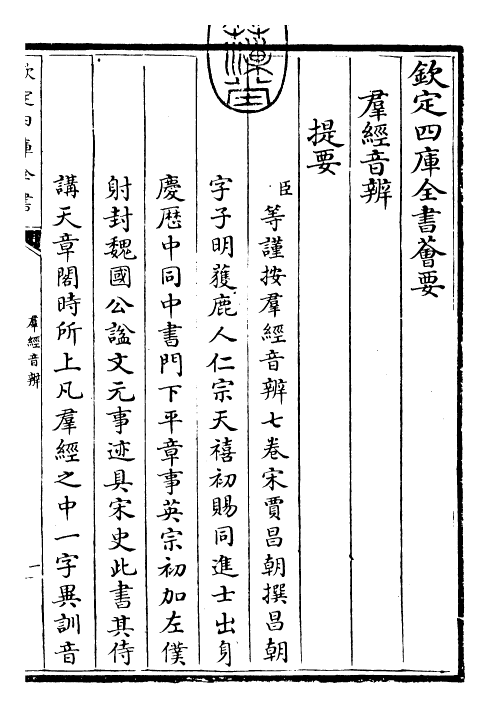 欽定四庫全書薈要
羣經音辨
提要
臣等謹按羣經音辨七卷宋賈昌朝撰昌朝
字子明獲鹿人仁宗天禧初賜同進士出身
慶厯中同中書門下平章事英宗初加左僕
射封魏國公諡文元事迹具宋史此書其侍
講天章閣時所上凡羣經之中一字異訓音
欽定四庫全書
羣經音辨
一